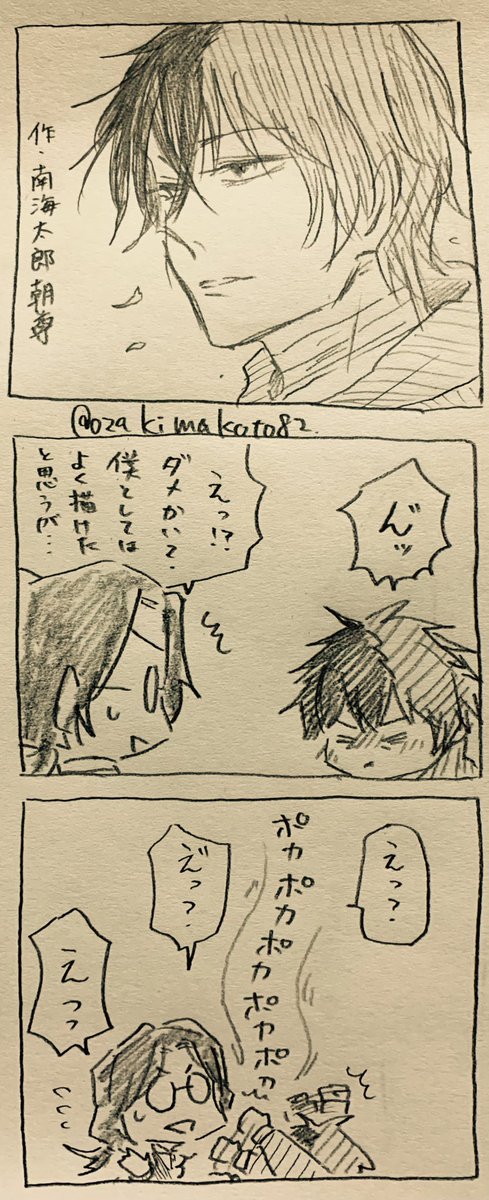 作・南海太郎朝尊
@ozakimakoto82
ん゛ッ
えっ!?
ダメかいで・
僕としては
よく描けた
と思うが…
えっ?
ポカポカポカポカポカ
え゛っ?
えっっ